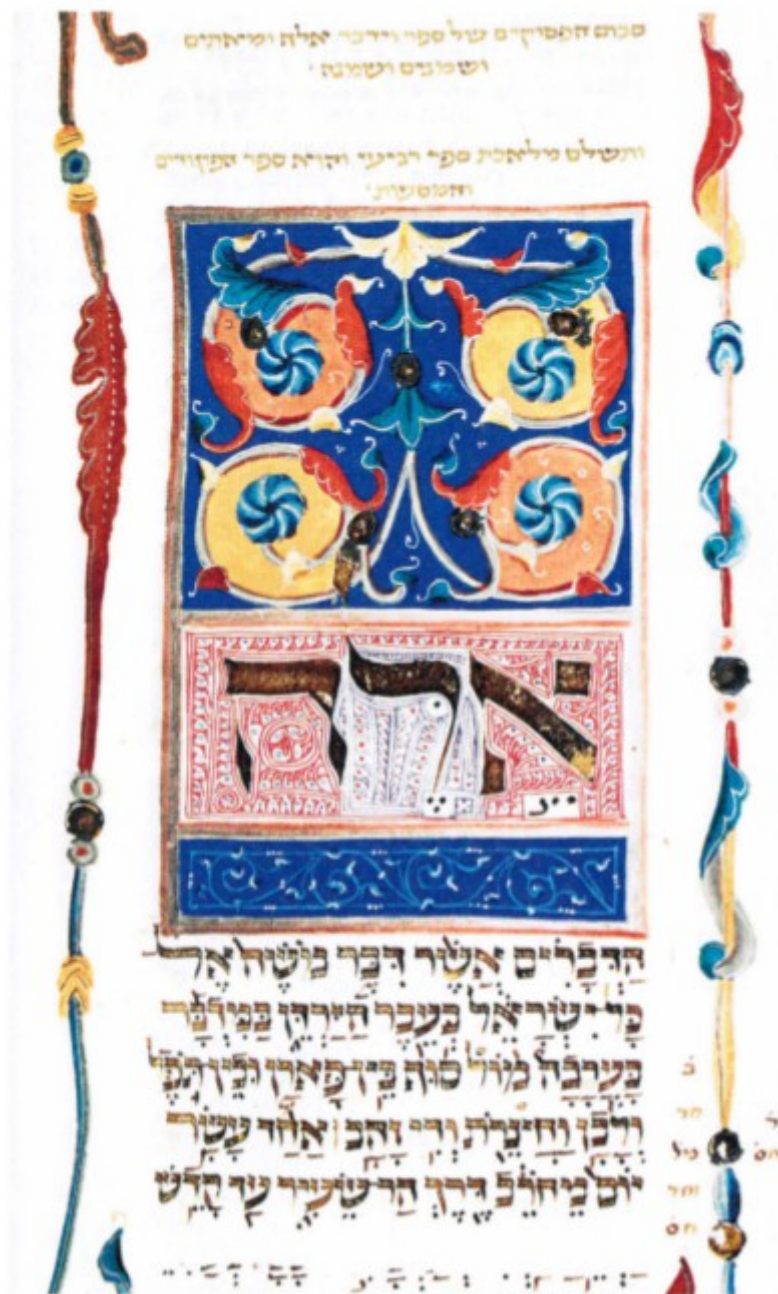 סכום הפסוקים של ספר וידבר אלף ומאתים
ושמנים ושמנה
ותשלם מלאכת ספר רביעי והוא ספר הפקודים
והמסעות
אֵלֶּה
הַדְּבָרִים אֲשֶׁר דִּבֶּר מֹשֶׁה אֶל־
כָּל־יִשְׂרָאֵל בְּעֵבֶר הַיַּרְדֵּן בַּמִּדְבָּר
בָּעֲרָבָה מוֹל סוּף בֵּין־פָּארָן וּבֵין־תֹּפֶל
וְלָבָן וַחֲצֵרֹת וְדִי זָהָב׃ אַחַד עָשָׂר
יוֹם מֵחֹרֵב דֶּרֶךְ הַר־שֵׂעִיר עַד קָדֵשׁ